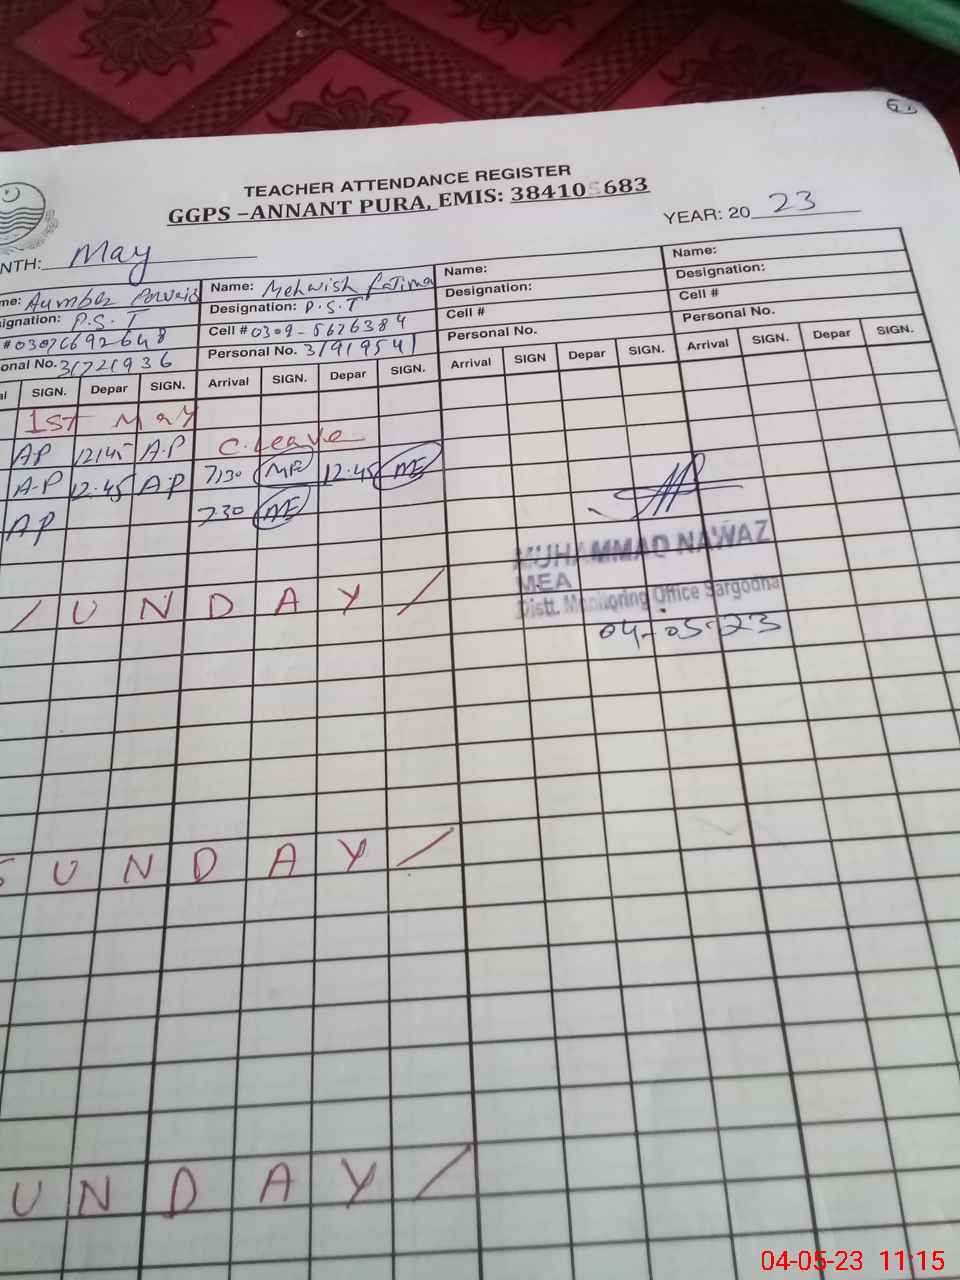 TEACHER ATTENDANCE REGISTER
GGPS –ANNANT PURA, EMIS: 384105683
YEAR: 2023
NTH: May
me: Aumber Parveis Name: Mehwish Fatima Name: Name:
signation: P.S.T Designation: P.S.T Designation: Designation:
#03076692648 Cell # 0309-5626384 Cell # Cell #
onal No. 31721936 Personal No. 31919541 Personal No. Personal No.
al SIGN. Depar SIGN. Arrival SIGN. Depar SIGN. Arrival SIGN Depar SIGN. Arrival SIGN. Depar SIGN.
1ST May
AP 12:45 A.P C.leave
A.P 12:45 AP 7:30 MF 12:45
AP 730
/ U N D A Y /
MUHAMMAD NAWAZ
MEA
Distt. Monitoring Office Sargodha
04-05-23
S U N D A Y /
U N D A Y /
04-05-23 11:15